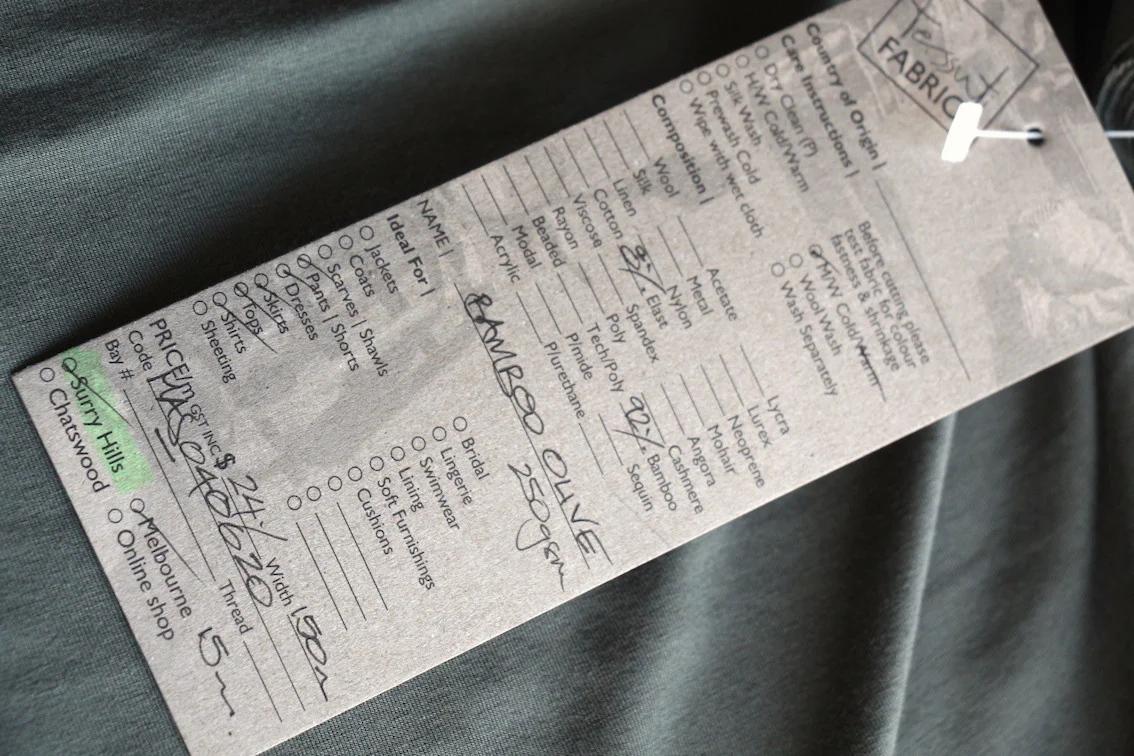 Tessuti
FABRICS
Country of Origin |
Care Instructions |
Dry Clean (P)
H/W Cold/Warm
Silk Wash
Prewash Cold
Wipe with wet cloth
Before cutting please
test fabric for colour
fastness & shrinkage
M/W Cold/Warm
Wool Wash
Wash Separately
Composition |
Wool
Silk
Linen
Cotton
Viscose
Rayon
Beaded
Modal
Acrylic
Acetate
Metal
Nylon
8% Elast
Spandex
Poly
Tech/Poly
P/mide
P/urethane
Lycra
Lurex
Neoprene
Mohair
Angora
Cashmere
92% Bamboo
Sequin
NAME | BAMBOO OLIVE
250gsm
Ideal For |
Jackets
Coats
Scarves | Shawls
Pants | Shorts
Dresses
Skirts
Tops
Shirts
Sheeting
Bridal
Lingerie
Swimwear
Lining
Soft Furnishings
Cushions
PRICE/m GST INC $ 24. Width 150
Code HAS040620
Bay # Thread
Surry Hills
Chatswood
Melbourne
Online shop
15m